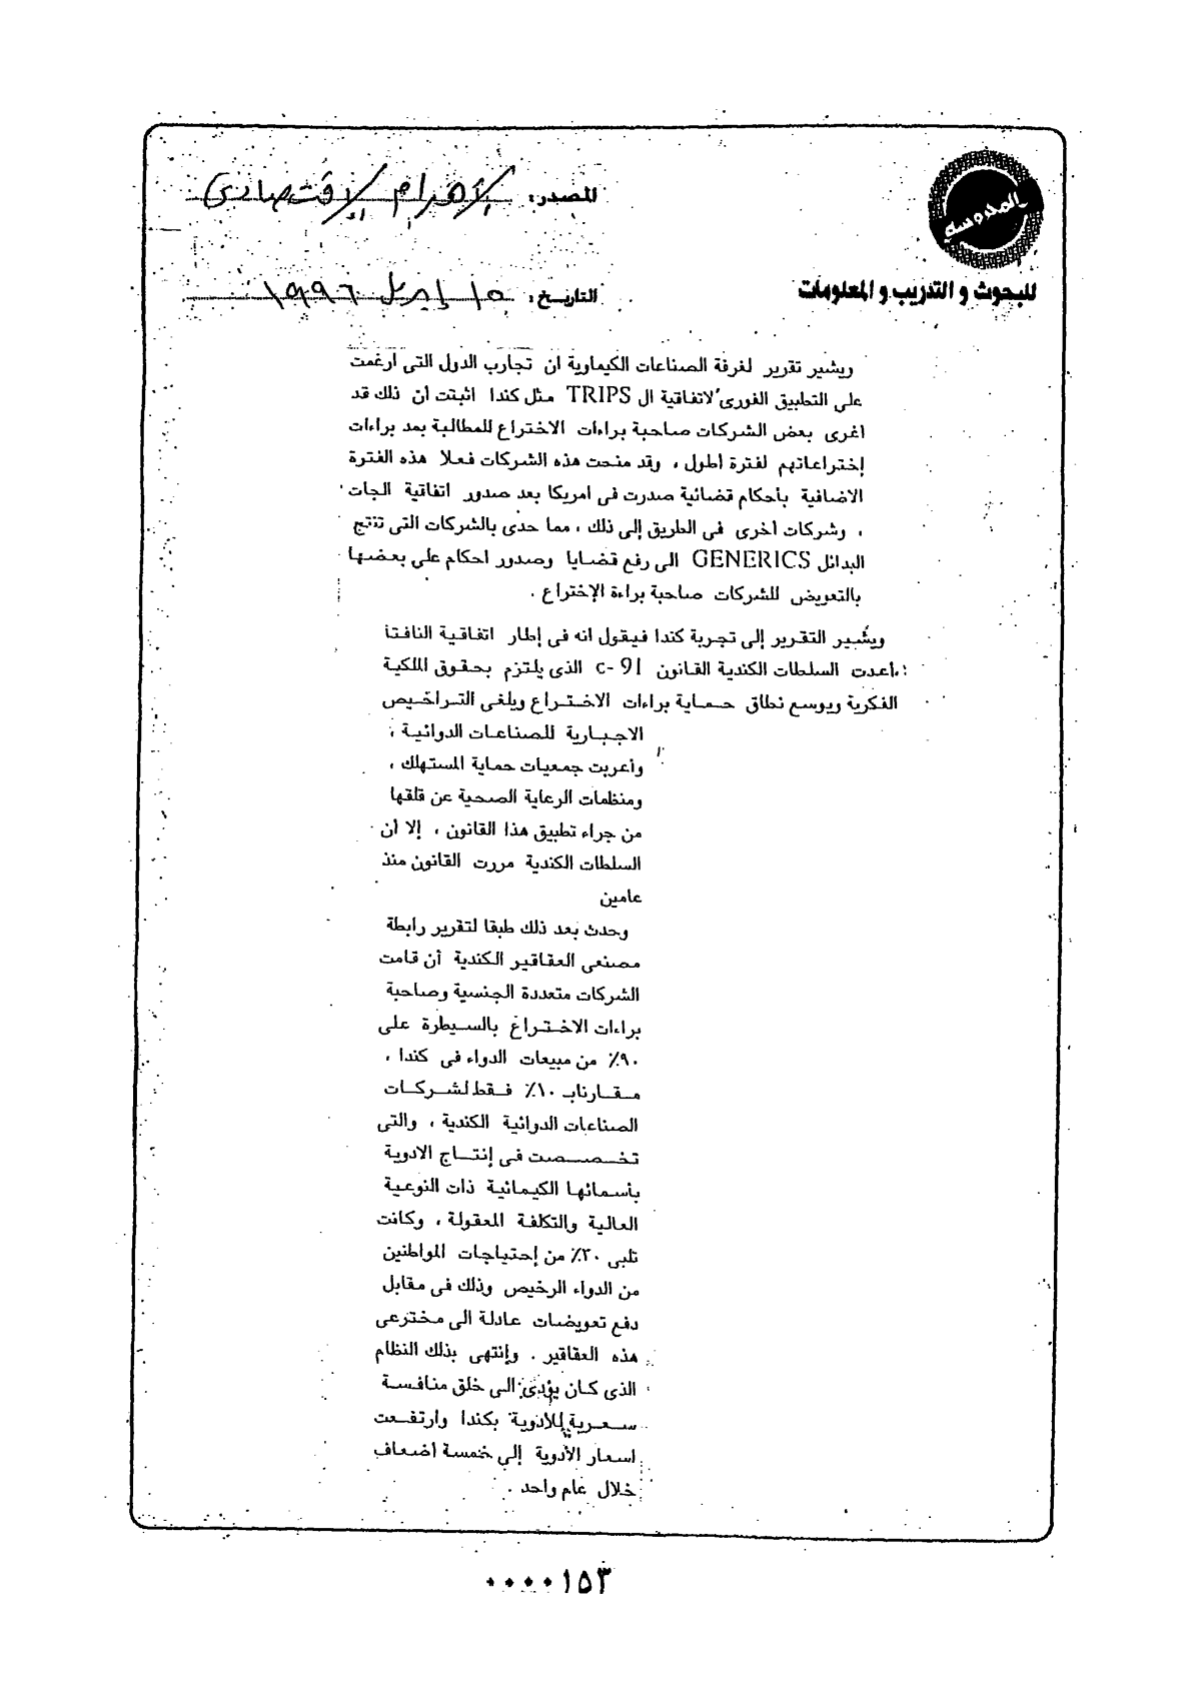 المحروسة
للبحوث و التدريب و المعلومات
المصدر: الأهرام الإقتصادى
التاريخ: ١٥ إبريل ١٩٩٦
ويشير تقرير لغرفة الصناعات الكيماوية ان تجارب الدول التى ارغمت
على التطبيق الفورى لاتفاقية ال TRIPS مثل كندا اثبتت أن ذلك قد
اغرى بعض الشركات صاحبة براءات الاختراع للمطالبة بمد براءات
إختراعاتهم لفترة أطول ، وقد منحت هذه الشركات فعلا هذه الفترة
الاضافية بأحكام قضائية صدرت فى امريكا بعد صدور اتفاقية الجات
، وشركات أخرى فى الطريق إلى ذلك ، مما حدى بالشركات التى تنتج
البدائل GENERICS الى رفع قضايا وصدور احكام على بعضها
بالتعويض للشركات صاحبة براءة الإختراع .
ويشير التقرير إلى تجربة كندا فيقول انه فى إطار اتفاقية النافتا
، أعدت السلطات الكندية القانون c-91 الذى يلتزم بحقوق الملكية
الفكرية ويوسع نطاق حماية براءات الاختراع ويلغى التراخيص
الاجبارية للصناعات الدوائية ،
وأعربت جمعيات حماية المستهلك ،
ومنظمات الرعاية الصحية عن قلقها
من جراء تطبيق هذا القانون ، إلا أن
السلطات الكندية مررت القانون منذ
عامين
وحدث بعد ذلك طبقا لتقرير رابطة
مصنعى العقاقير الكندية أن قامت
الشركات متعددة الجنسية وصاحبة
براءات الاختراع بالسيطرة على
٩٠٪ من مبيعات الدواء فى كندا ،
مقارناب ١٠٪ فقط لشركات
الصناعات الدوائية الكندية ، والتى
تخصصت فى إنتاج الادوية
بأسمائها الكيمائية ذات النوعية
العالية والتكلفة المعقولة ، وكانت
تلبى ٢٠٪ من إحتياجات المواطنين
من الدواء الرخيص وذلك فى مقابل
دفع تعويضات عادلة الى مخترعى
هذه العقاقير . وإنتهى بذلك النظام
الذى كان يؤدى الى خلق منافسة
سعرية للأدوية بكندا وارتفعت
اسعار الأدوية إلى خمسة اضعاف
خلال عام واحد .
٠٠٠٠١٥٣